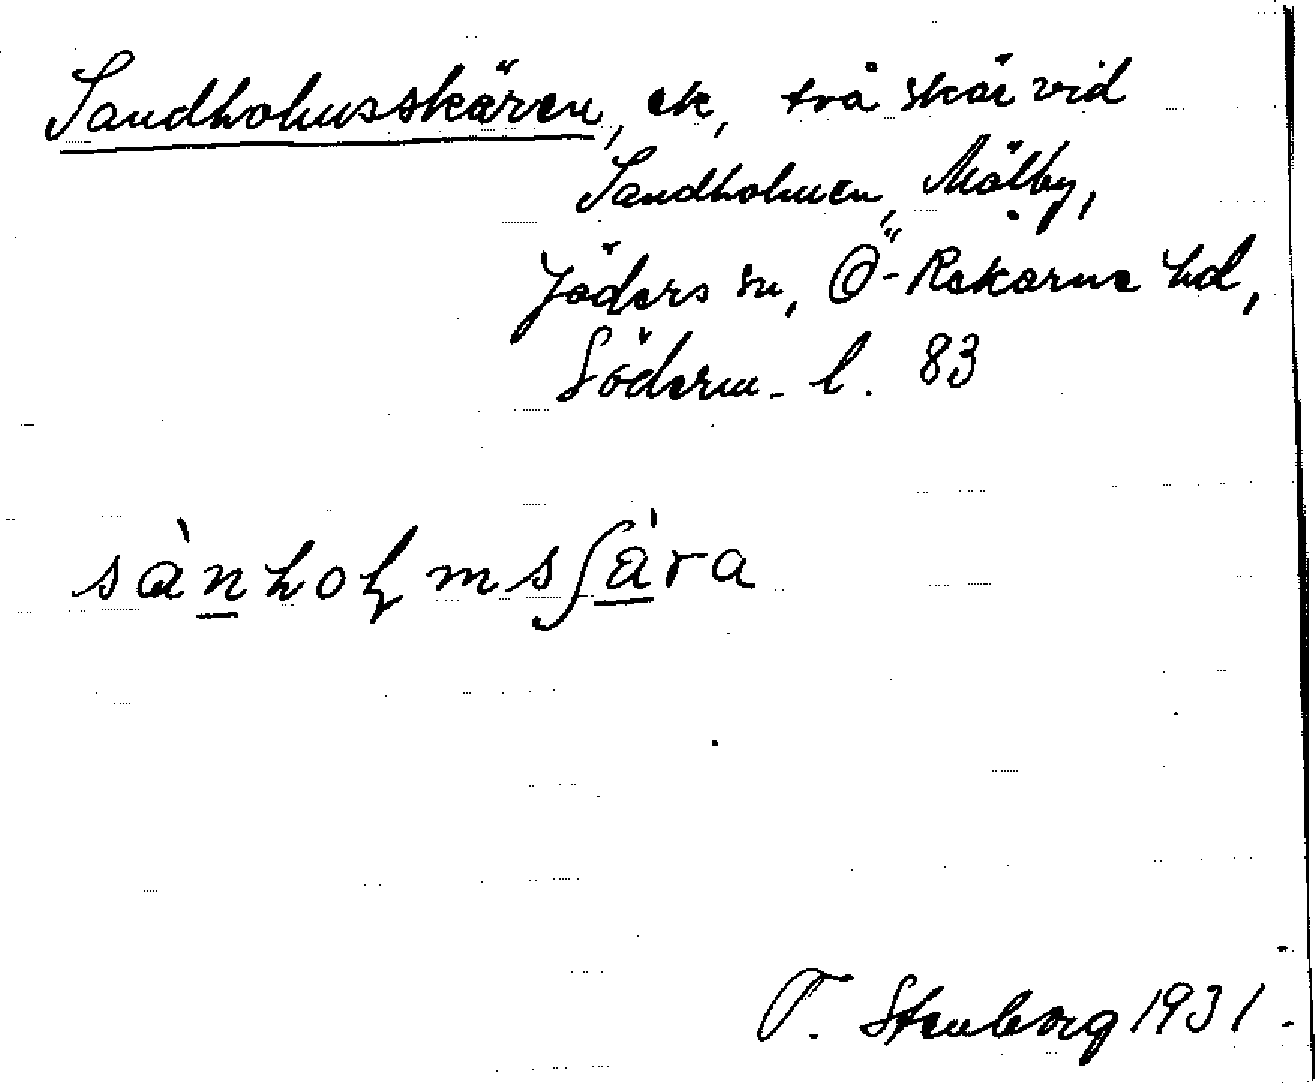 Sandholmsskären, ek, två skär vid
Sandholmen, Mälby,
Jäders sn, Ö-Rekarne hd,
Söderm. l. 83
sànholmsʃä̀ra
T. Stenborg 1931.